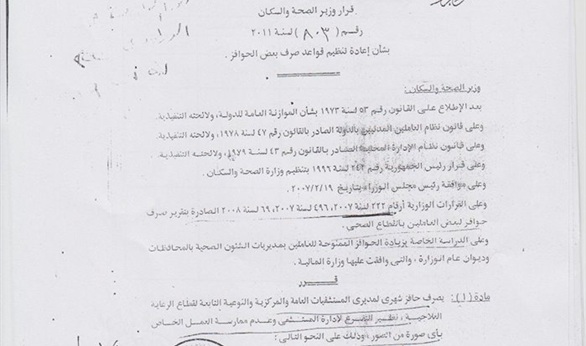 قرار وزير الصحة والسكان
رقم (٨٠٣) لسنة ٢٠١١
بشأن إعادة تنظيم قواعد صرف بعض الحوافز .
وزير الصحة والسكان:
بعد الإطلاع على القانون رقم ٥٣ لسنة ١٩٧٣ بشأن الموازنة العامة للدولة، ولائحته التنفيذية.
وعلى قانون نظام العاملين المدنيين بالدولة الصادر بالقانون رقم ٤٧ لسنة ١٩٧٨، ولائحته التنفيذية.
وعلى قانون نظام الإدارة المحلية الصادر بالقانون رقم ٤٣ لسنة ١٩٧٩، ولائحته التنفيذية.
وعلى قرار رئيس الجمهورية رقم ٢٤٢ لسنة ١٩٩٦ بتنظيم وزارة الصحة والسكان.
وعلى موافقة رئيس مجلس الوزراء بتاريخ ٢٠٠٧/٢/١٩.
وعلى القرارات الوزارية أرقام ٢٢٢ لسنة ٢٠٠٧، ٤٩٦ لسنة ٢٠٠٧، ٦٩ لسنة ٢٠٠٨ الصادرة بتقرير صرف
حوافز لبعض العاملين بالقطاع الصحى.
وعلى الدراسة الخاصة بزيادة الحوافز الممنوحة للعاملين بمديريات الشئون الصحية بالمحافظات
وديوان عام الوزارة، والتى وافقت عليها وزارة المالية.
قرر
مادة (١): يصرف حافز شهرى لمديرى المستشفيات العامة والمركزية والنوعية التابعة لقطاع الرعاية
العلاجية، نظير التفرغ لإدارة المستشفى وعدم ممارسة العمل الخاص
بأى صورة من الصور، وذلك على النحو التالى: